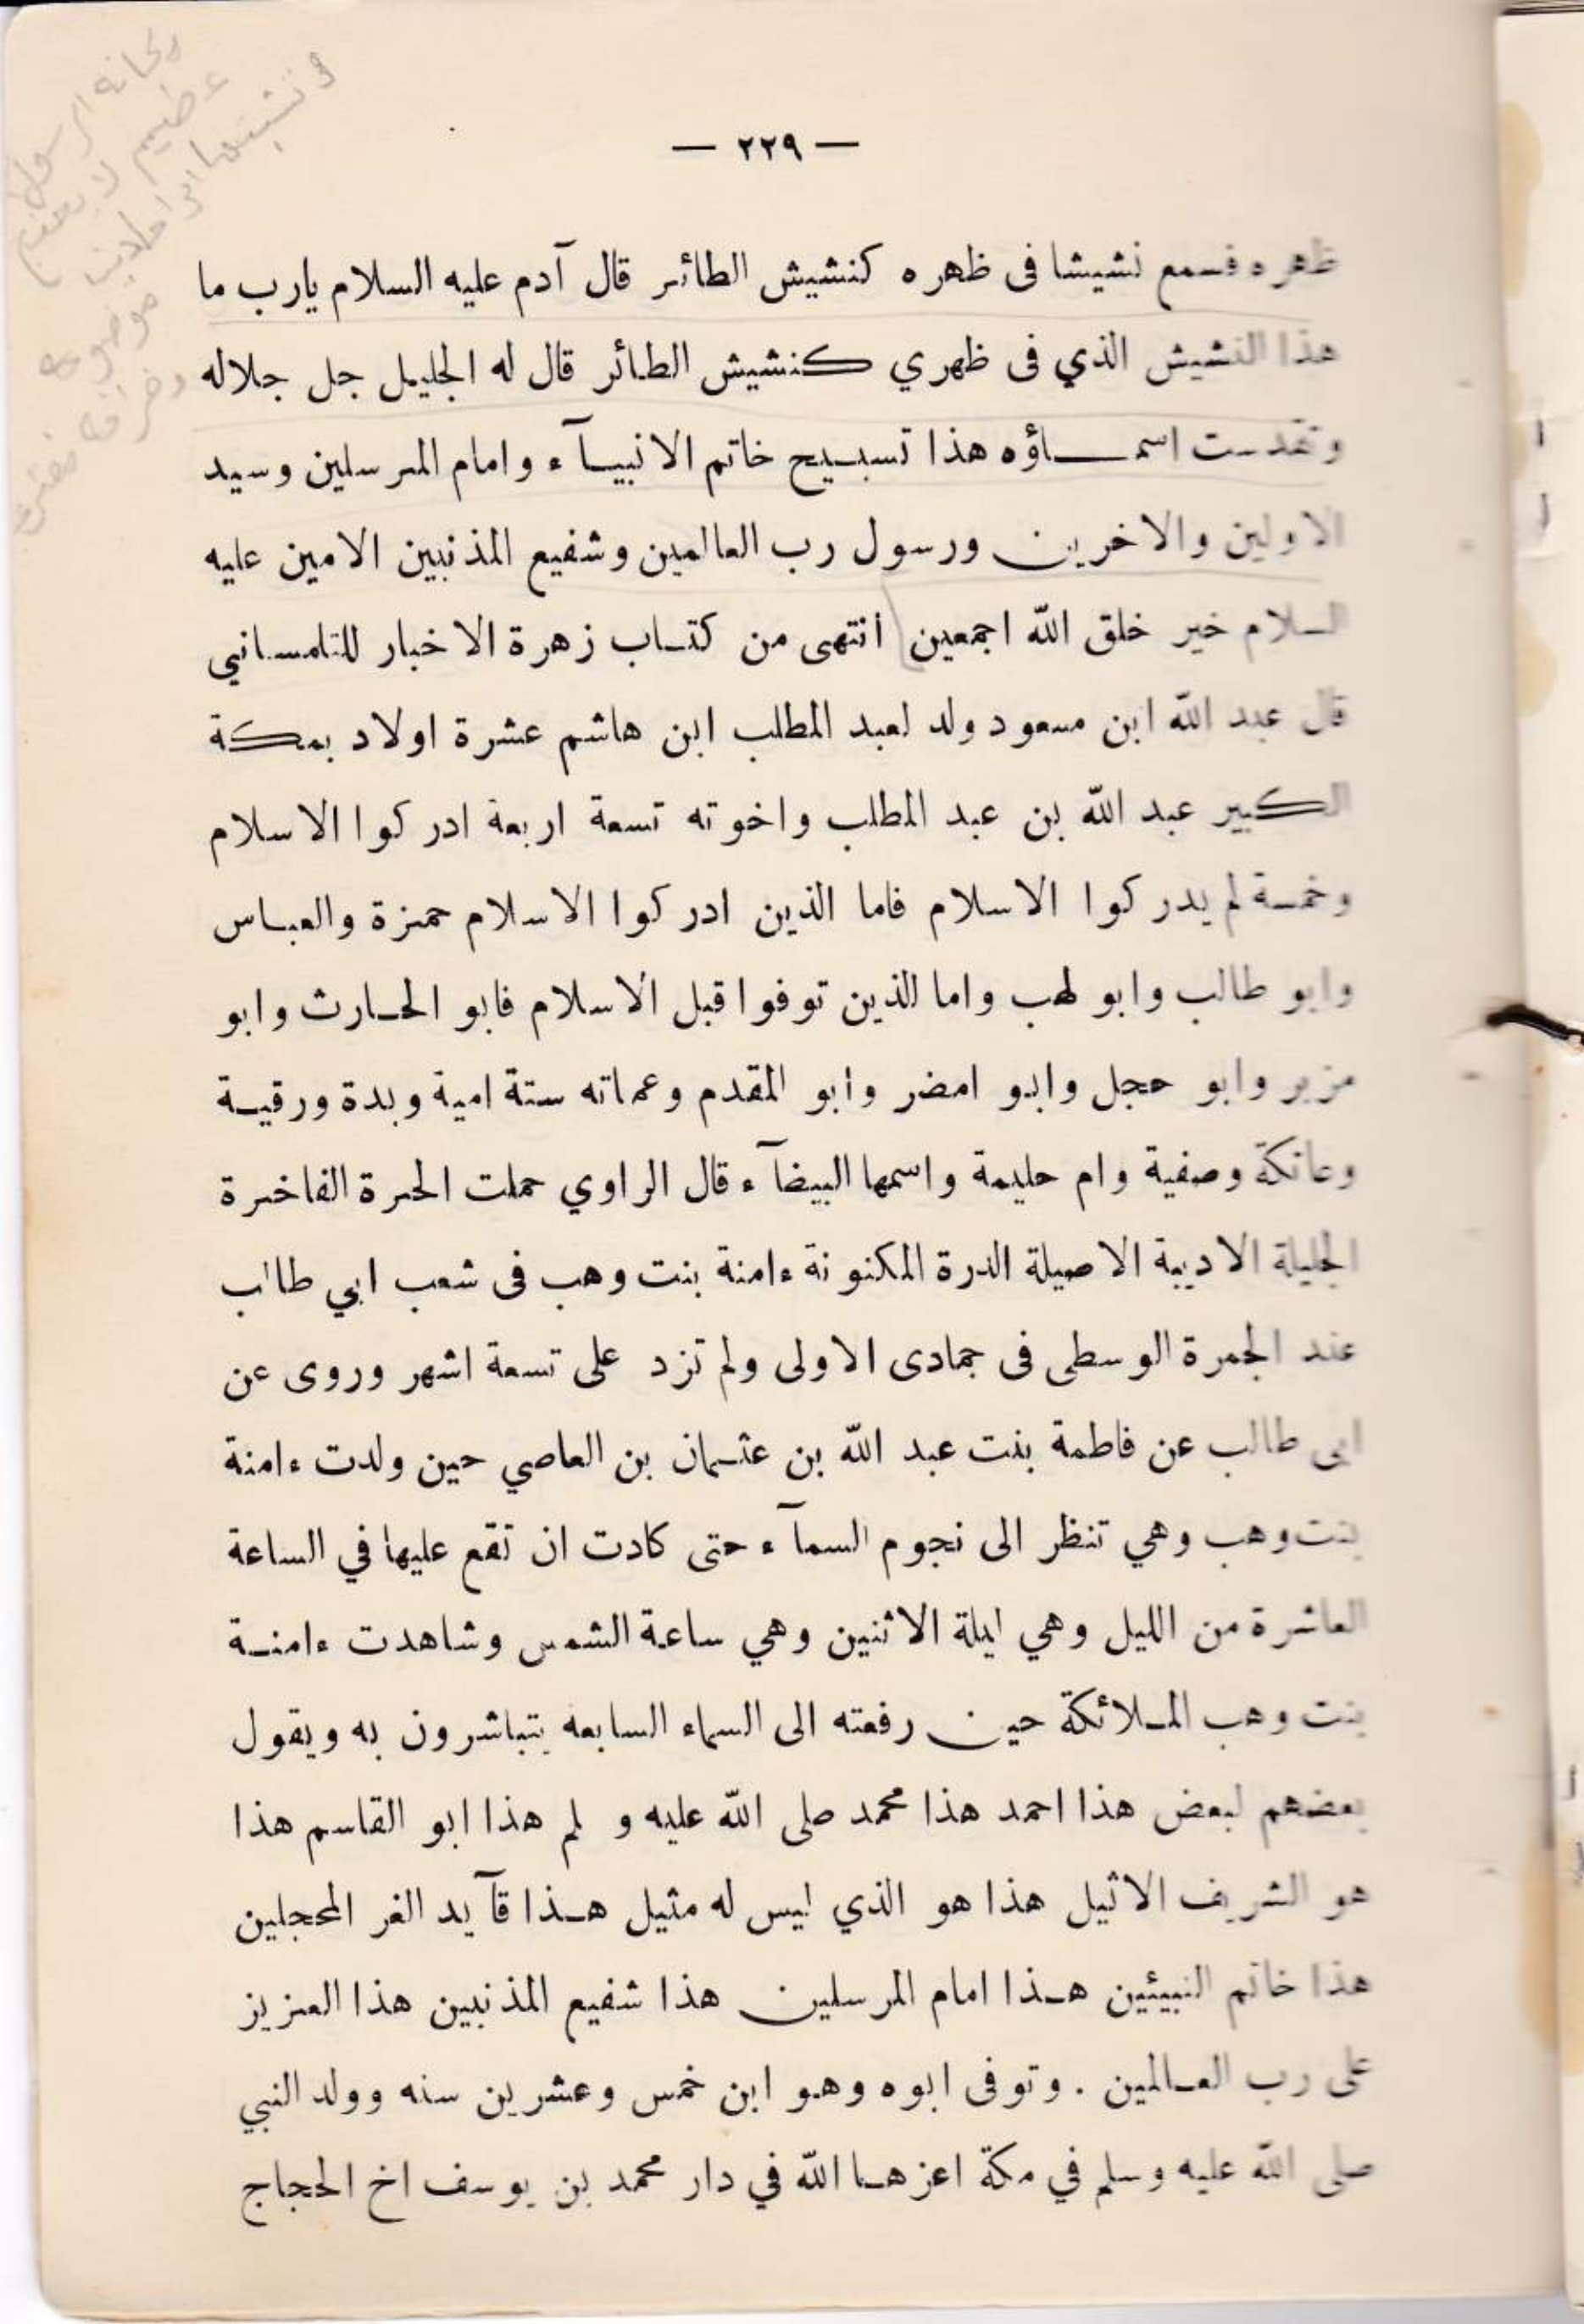 — ٢٢٩ —
ظهره فسمع نشيشا فى ظهره كنشيش الطائر قال آدم عليه السلام يارب ما
هذا النشيش الذي فى ظهري كنشيش الطائر قال له الجليل جل جلاله
وتقدست اسماؤه هذا تسبيح خاتم الانبيآء وامام المرسلين وسيد
الاولين والاخرين ورسول رب العالمين وشفيع المذنبين الامين عليه
السلام خير خلق الله اجمعين انتهى من كتاب زهرة الاخبار للتلمساني
قال عبد الله ابن مسعود ولد لعبد المطلب ابن هاشم عشرة اولاد بمكة
الكبير عبد الله بن عبد المطلب واخوته تسعة اربعة ادركوا الاسلام
وخمسة لم يدركوا الاسلام فاما الذين ادركوا الاسلام حمزة والعباس
وابو طالب وابو لهب واما الذين توفوا قبل الاسلام فابو الحارث وابو
مزير وابو حجل وابو امضر وابو المقدم وعماته ستة امية وبدة ورقية
وعاتكة وصفية وام حليمة واسمها البيضآء قال الراوي حملت الحرة الفاخرة
الجليلة الاديبة الاصيلة الدرة المكنونة ءامنة بنت وهب فى شعب ابي طالب
عند الجمرة الوسطى فى جمادى الاولى ولم تزد على تسعة اشهر وروى عن
ابى طالب عن فاطمة بنت عبد الله بن عثمان بن العاصي حين ولدت ءامنة
بنت وهب وهي تنظر الى نجوم السمآء حتى كادت ان تقع عليها في الساعة
العاشرة من الليل وهي ليلة الاثنين وهي ساعة الشمس وشاهدت ءامنة
بنت وهب الملائكة حين رفعته الى السماء السابعه يتباشرون به ويقول
بعضهم لبعض هذا احمد هذا محمد صلى الله عليه و لم هذا ابو القاسم هذا
هو الشريف الاثيل هذا هو الذي ليس له مثيل هذا قآيد الغر المحجلين
هذا خاتم النبيئين هذا امام المرسلين هذا شفيع المذنبين هذا العزيز
على رب العالمين . وتوفى ابوه وهو ابن خمس وعشرين سنه وولد النبي
صلى الله عليه وسلم في مكة اعزها الله في دار محمد بن يوسف اخ الحجاج